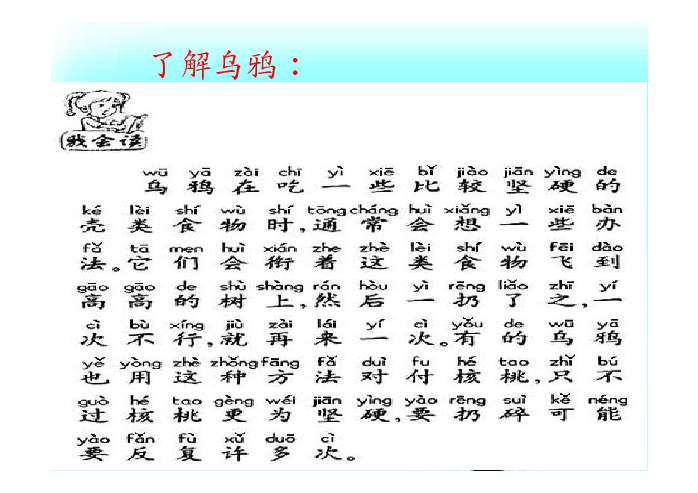 了解乌鸦：
我会读
wū yā zài chī yì xiē bǐ jiào jiān yìng de
乌鸦在吃一些比较坚硬的
ké lèi shí wù shí tōng cháng huì xiǎng yì xiē bàn
壳类食物时,通常会想一些办
fǎ tā men huì xián zhe zhè lèi shí wù fēi dào
法。它们会衔着这类食物飞到
gāo gāo de shù shàng rán hòu yì rēng liǎo zhī yí
高高的树上,然后一扔了之,一
cì bù xíng jiù zài lái yí cì yǒu de wū yā
次不行,就再来一次。有的乌鸦
yě yòng zhè zhǒng fāng fǎ duì fu hé tao zhǐ bú
也用这种方法对付核桃,只不
guò hé tao gèng wéi jiān yìng yào rēng suì kě néng
过核桃更为坚硬,要扔碎可能
yào fǎn fù xǔ duō cì
要反复许多次。